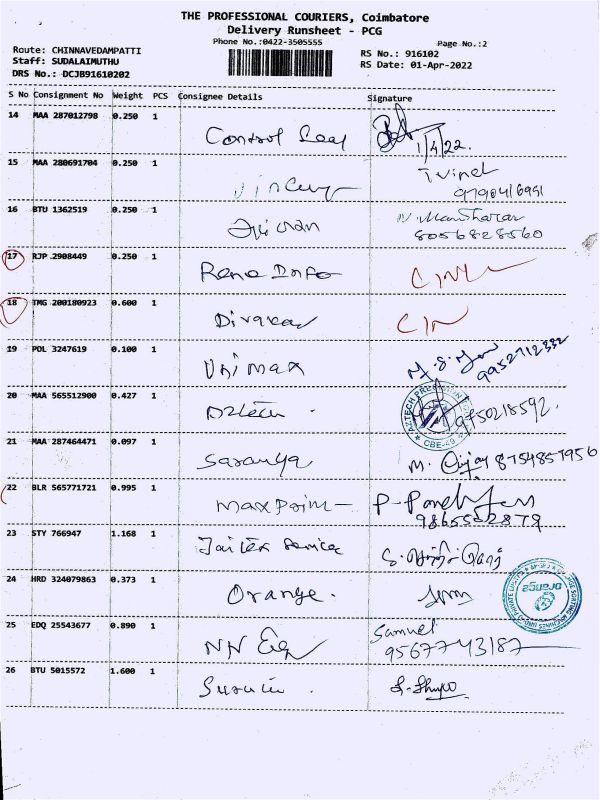 THE PROFESSIONAL COURIERS, Coimbatore
Delivery Runsheet - PCG
Phone No.:0422-3505555
Page No.:2
Route: CHINNAVEDAMPATTI
RS No.: 916102
Staff: SUDALAIMUTHU
RS Date: 01-Apr-2022
DRS No.: DCJB91610202
S No Consignment No Weight PCS Consignee Details Signature
14 MAA 287012798 0.250 1 Control 1/4/22.
15 MAA 280691704 0.250 1
16 BTU 1362519 0.250 1 N. Manoharan
8056828560
17 RJP 2908449 0.250 1 Rene Info
18 TMG 200180923 0.600 1 Divakar
19 POL 3247619 0.100 1 Unimax 9952712332
20 MAA 565512900 0.427 1 Aztech 9750218592.
21 MAA 287464471 0.097 1 Saranya M. Vijay 8754857956
22 BLR 565771721 0.995 1 Maxpoint
23 STY 766947 1.168 1 Jaitex Service
24 HRD 324079863 0.373 1 Orange.
25 EDQ 25543677 0.890 1 NN Samuel
9567743187
26 BTU 5015572 1.600 1